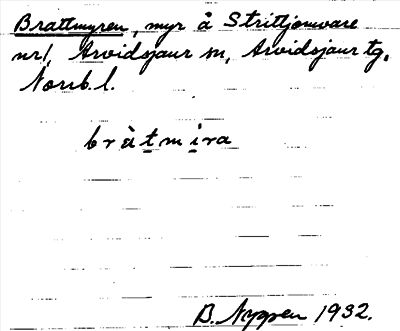 Brattmyren, myr å Strittjomvare
nr 1, Arvidsjaur sn, Arvidsjaur tg,
Norrb. l.
bràtmira
B. Nygren 1932.